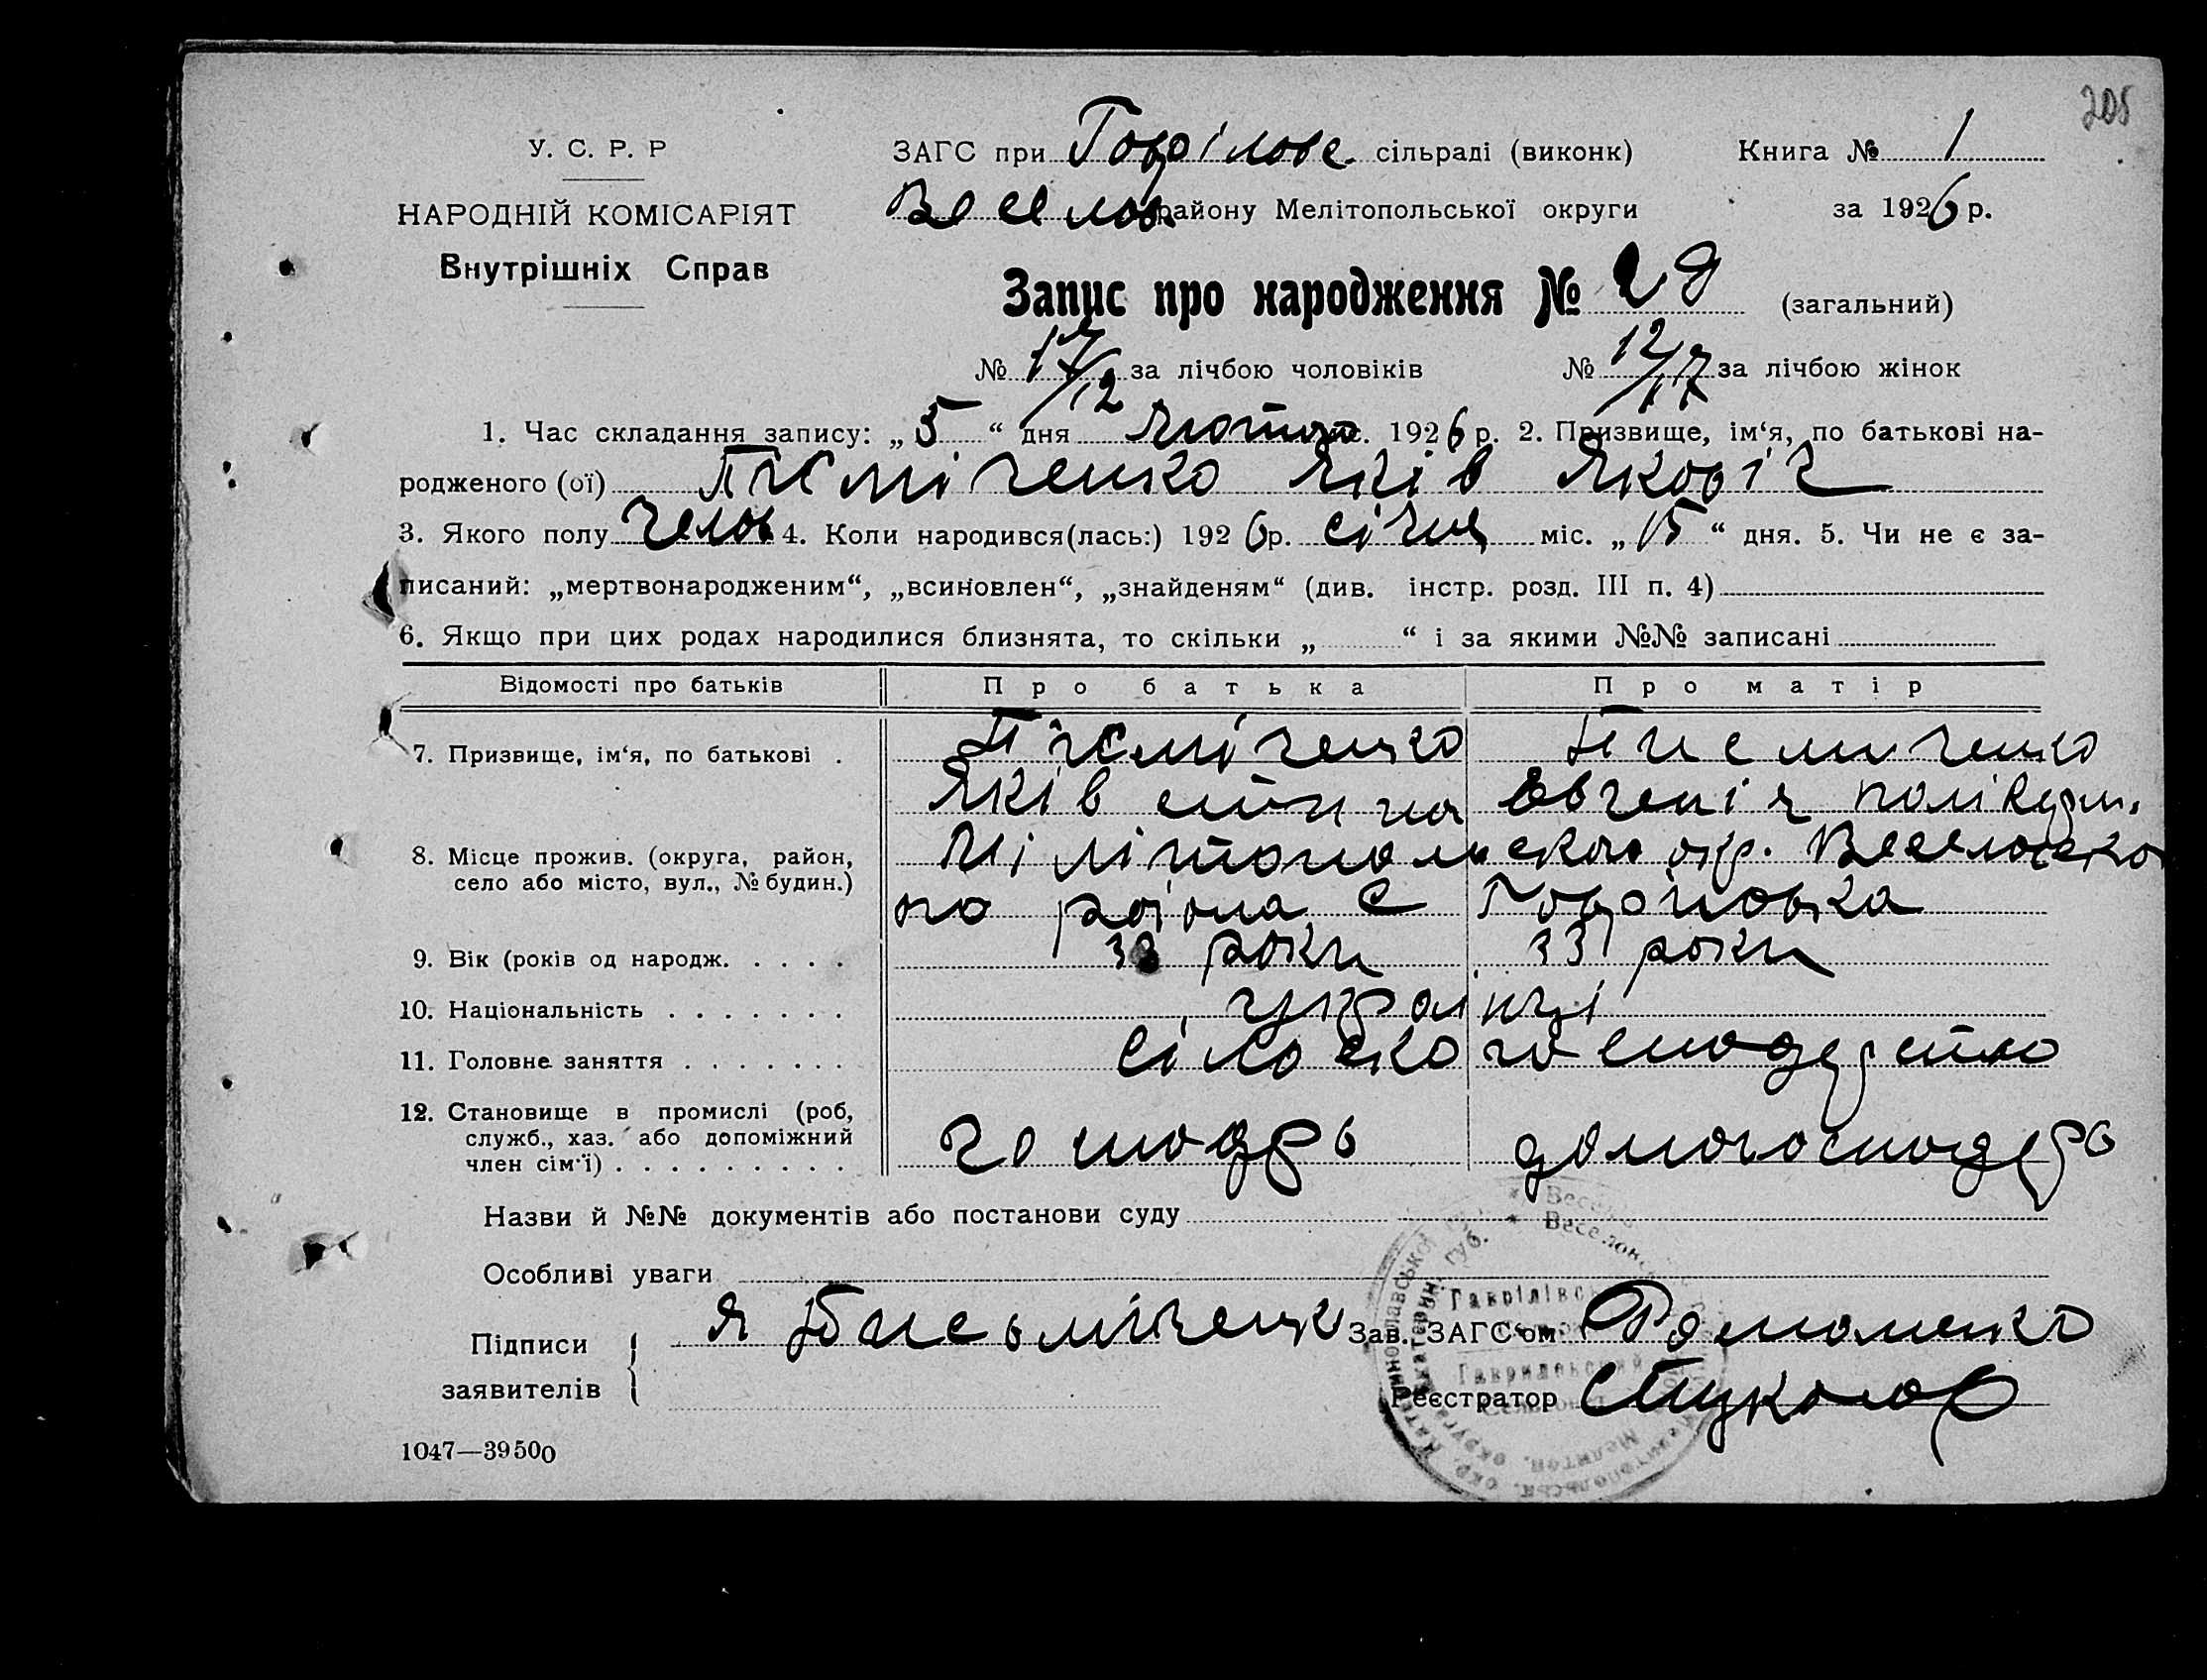 205
У. С. Р. Р
НАРОДНІЙ КОМІСАРІЯТ
Внутрішніх Справ
ЗАГС при Гаврілове сільраді (виконк) Книга № 1
Весело району Мелітопольської округи за 1926 р.
Запис про народження № 29 (загальний)
№ 17/12 за лічбою чоловіків № 12/17 за лічбою жінок
1. Час складання запису: „ 5 “ дня Лютого міс. 1926 р. 2. Призвище, ім‘я, по батькові на-
родженого (ої) Писміченко Яків Яковіч
3. Якого полу челов 4. Коли народився(лась:) 1926 р. січня міс. „ 15 “ дня. 5. Чи не є за-
писаний: „мертвонародженим“, „всиновлен“, „знайденям“ (див. інстр. розд. III п. 4)
6. Якщо при цих родах народилися близнята, то скільки „ “ і за якими №№ записані
Відомості про батьків Про батька Про матір
7. Призвище, ім‘я, по батькові . Писміченко Писмиченко
Яків Євгенія
8. Місце прожив. (округа, район, Мілітопольскою окр. Веселовско
село або місто, вул., № будин.)
го раіона С Гавріловка
9. Вік (років од народж. . . . . 33 роки 33 роки
10. Національність . . . . . . . українці
11. Головне заняття . . . . . . . сілско господарство
12. Становище в промислі (роб,
служб., хаз. або допоміжний господарь домогосподарь
член сім‘ї) . . . . . . . . .
Назви й №№ документів або постанови суду
Особливі уваги
Підписи Я Письміченко Зав. ЗАГС‘ом Романенко
заявителів Реєстратор
1047—39500
Гаврілівсь
Гаврилевский